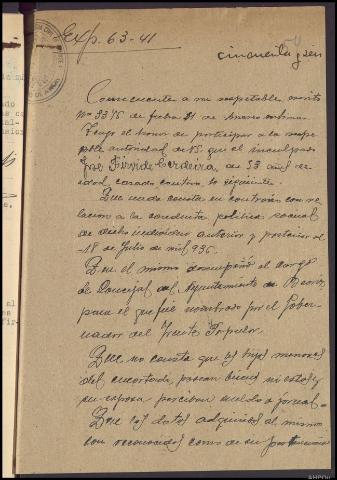 Exp. 63-41
cincuenta y seis
Consecuente a su respetable escrito
nº 3375 de fecha 31 de marzo último
Tengo el honor de participar a la respe-
table autoridad de VS. que el inculpado
José Fírvida Cerdeira, de 53 años de
edad, casado cantero, lo siguiente.
Que nada consta en contrario con re-
lacion a la conducta politica social
de dicho individuo anterior y posterior al
18 de Julio de mil 936.
Que el mismo desempeñó el cargo
de Concejal del Ayuntamiento de
para el que fué nombrado por el Gober-
nador del Frente Popular.
Que no consta que los hijos menores
del encartado, posean bienes ni estos y
su esposa perciban sueldo o jornal.
Que los datos adquiridos del mismo
son reconocidos como de su pertenencia